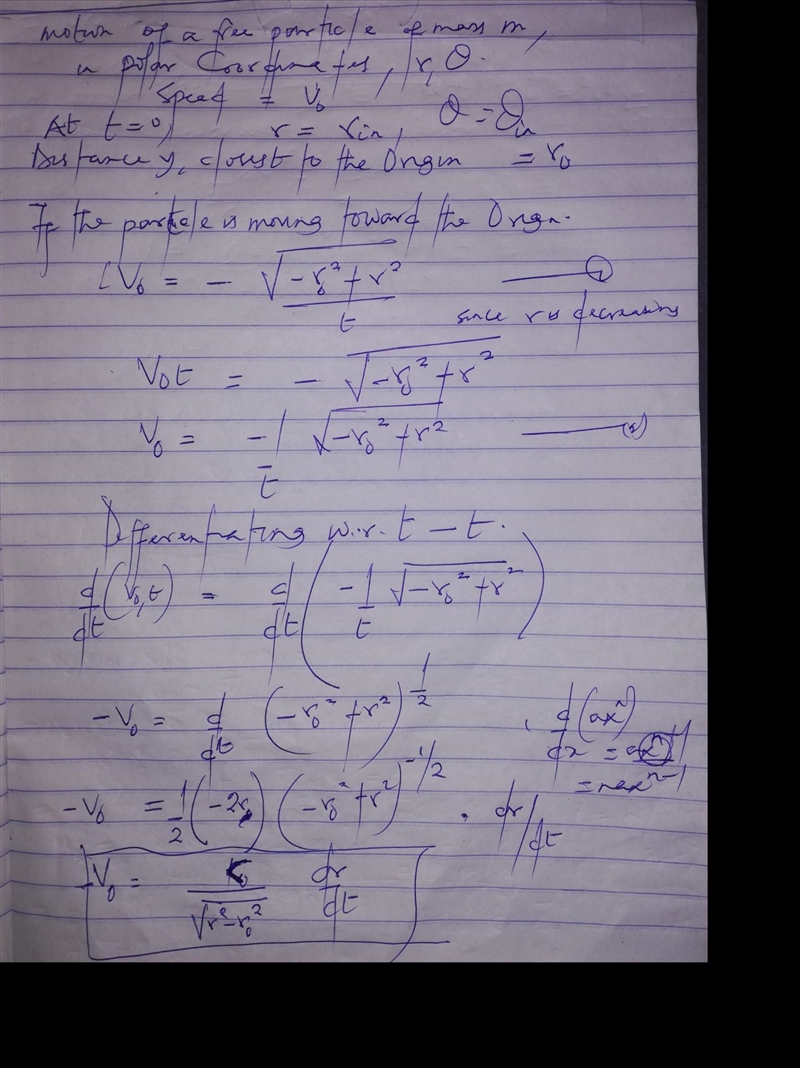 motion of a free particle of mass m,
in polar Coordinates, r, θ.
Speed = V₀
At t=0, r = r_in, θ = θ_in
Distance y, closest to the Origin = r₀
If the particle is moving toward the Origin.
V₀ = - √(-r₀² + r²) / t —— ①
since r is decreasing
V₀t = - √(-r₀² + r²)
V₀ = -1/t √(-r₀² + r²) —— (2)
Differentiating w.r.t - t.
d/dt (V₀,t) = d/dt ( -1/t √(-r₀² + r²) )
-V₀ = d/dt (-r₀² + r²)^1/2 , d/dx (axⁿ)
= naxⁿ⁻¹
-V₀ = 1/2 (-2r) (-r₀² + r²)^-1/2 . dr/dt
-V₀ = r₀ / √(r² - r₀²) dr/dt